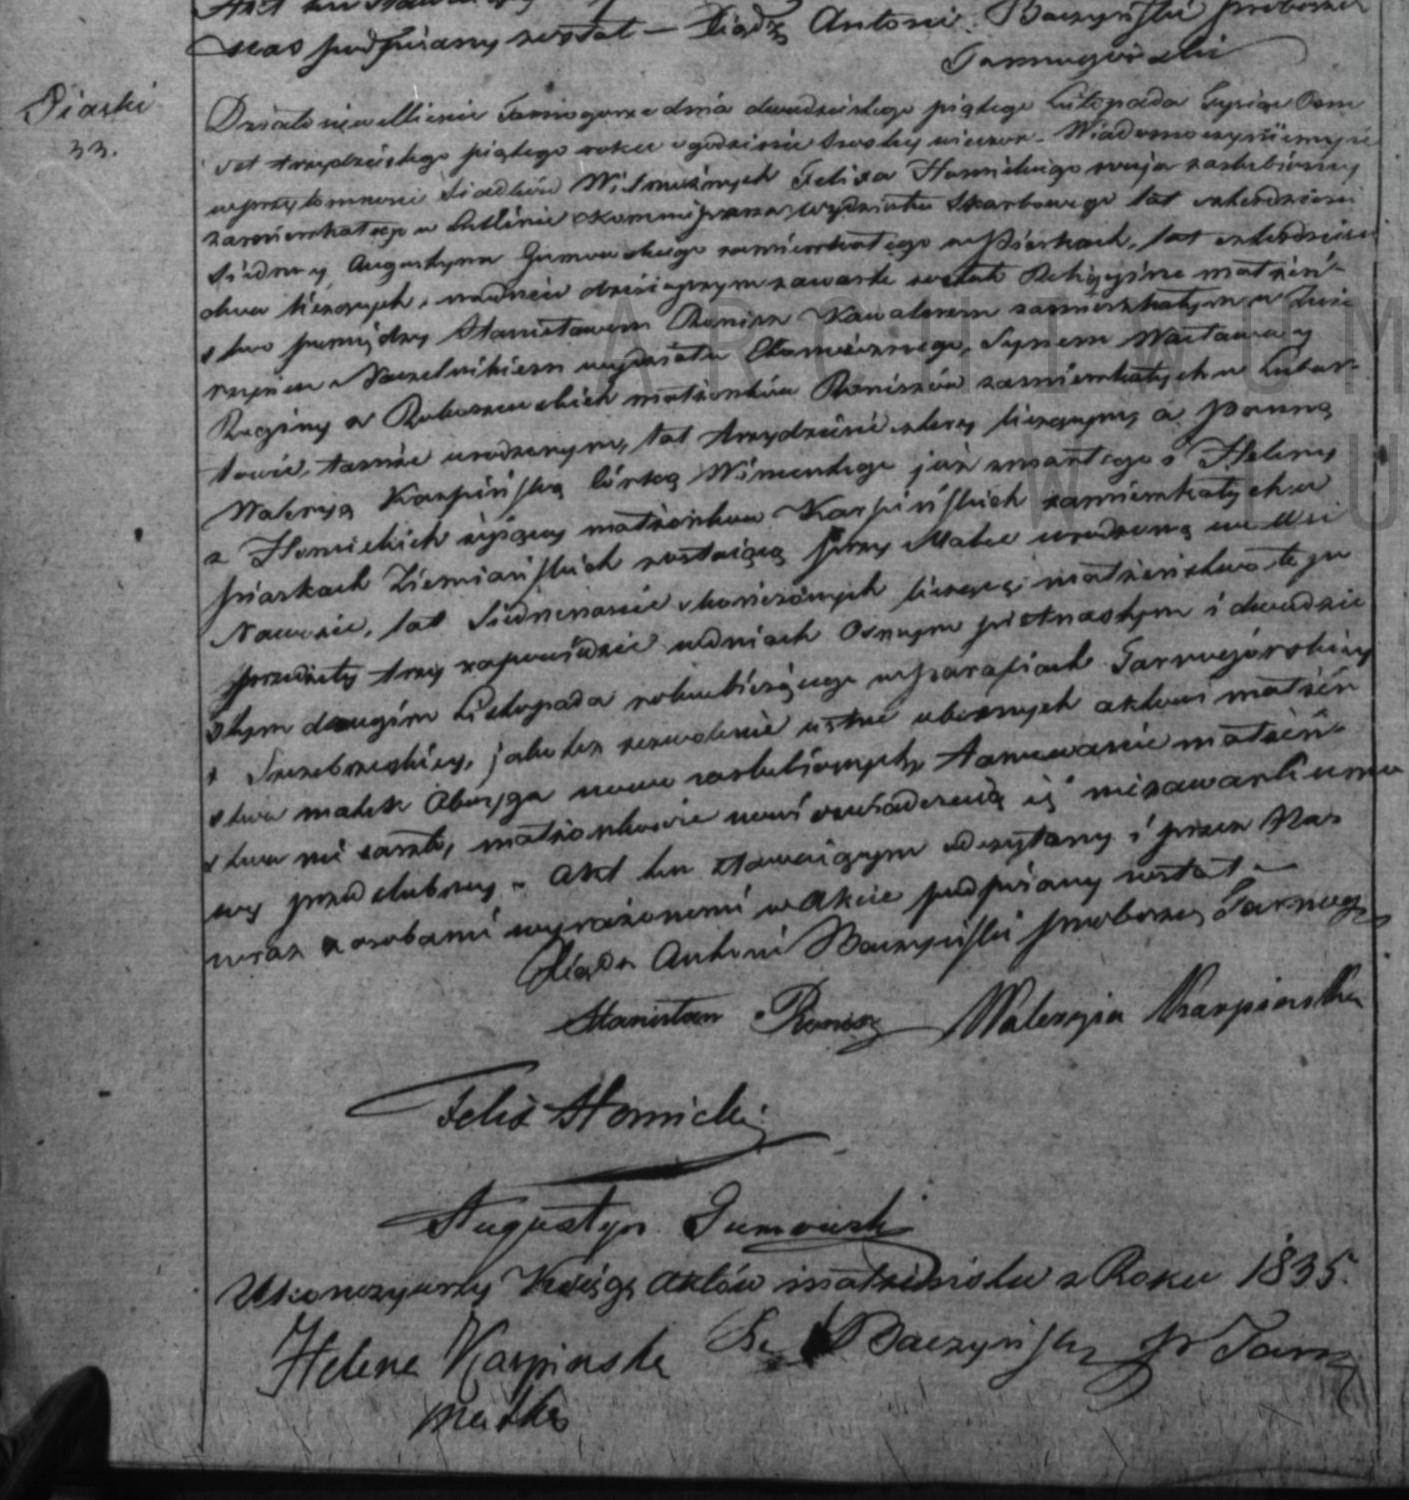 Akt ten
nas podpisany został — Xiądz Antoni Baczyński proboszcz
Tarnogórski
Piaski
33.
Działo się w Mieście Tarnogórze dnia dwudziestego piątego Listopada Tysiąc Osm
set trzydziestego piątego roku o godzinie szostey wieczor. Wiadomo czyniemy iż
w przytomności Swiadków Wielmożnych Felixa Hornickiego wuja zaślubioney
zamieszkałego w Lublinie Kommissarza Wydziału Skarbowego lat czterdzieści
siedm y Augustyna Gumowskiego zamieszkałego w Piaskach, lat czterdzieści
dwa liczących, na dniu dzisiejszym zawarte zostało Religijne małżeń-
stwo pomiędzy Stanisławem Ronisz Kawalerem zamieszkałym w
Naczelnikiem wyrobu Synem Wacława y
Reginy z małżonków Roniszów zamieszkałych w Lubar-
towie, tamże urodzonym, lat trzydzieści cztery liczącym, a Panną
Waleryą Karpińską Córką Wincentego już zmarłego i Heleny
z Hornickich żyjącey małżonków Karpińskich zamieszkałych w
Piaskach Ziemiańskich zostającą przy Matce urodzoną we Wsi
Nawozie, lat Siedmnaście skończonych liczącą; małżeństwo to po
przedziły trzy zapowiedzie w dniach Osmym piętnastym i dwudzie
stym drugim Listopada roku bieżącego w parafiach Tarnogórskiey
i Szczebrzeskiey, jako też zezwolenie ustne obecnych aktowi małżeń
stwa matki Oboyga nowo zaślubionych, tamowanie małżeń-
stwa nie zaszło, małżonkowie nowi oświadczają iż nie zawarli umo
wy przedślubney. Akt ten stawaiącym odczytany i przez Nas
wraz z osobami wyrażonemi w Akcie podpisany został.
Xiądz Antoni Baczyński proboszcz Tarnog
Stanisław Ronisz Waleryia Karpinska
Felix Hornicki
Augustyn Gumowski
Ukonczywszy Księgę Aktów małżeństw z Roku 1835.
Helena Karpinska Baczyński Tarn
matka